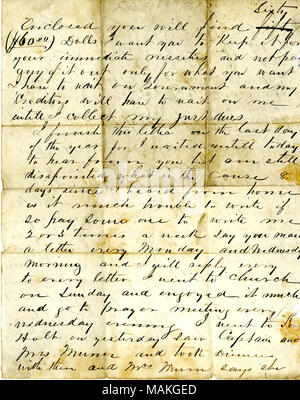 Sixty
Enclosed you will find fifty
($60.00) Dolls I want you to Keep it for
your immediate nessities and not pay
any of it out only for what you want
I have to wait on Government and my
Creditors will have to wait on me
untill I collect my just dues
I finish this letter on the last day
of the year for I waited untill today
to hear from you but am still
disapointed what is the Cause 8
days since I heard from home
is it much trouble to write if
so pay some one to write me
2 or 3 times a week say you mail
a letter every Monday and Wednesday
morning and I will reply
to every letter I went to Church
on Sunday and enjoyed it much
and go to prayer meeting every
wednesday evening I went to
Holt on yesterday saw Captain and
Mrs Munn and took Dinner
with them and Mrs Munn says she
alamy
MAKGED